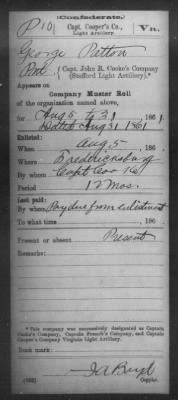 (Confederate.)
P 101 Capt. Cooper's Co., Vn.
Light Artillery.
George Patton
Pvt., Capt. John R. Cooke's Company
(Stafford Light Artillery).*
Appears on
Company Muster Roll
of the organization named above,
for Aug 5 to 31, 1861.
Dated Aug 31 1861
Enlisted:
When Aug 5, 186 .
Where Fredericksburg
By whom Capt Cooke
Period 12 Mos.
Last paid:
By whom Pay due from enlistment
To what time , 186 .
Present or absent Present
Remarks:
*This company was successively designated as Captain
Cooke's Company, Captain French's Company, and Captain
Cooper's Company Virginia Light Artillery.
Book mark:
Copyist.